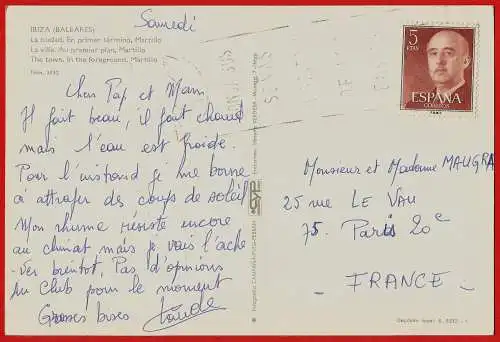 Samedi
IBIZA (BALEARES)
La ciudad. En primer término, Martillo
La ville. Au premier plan, Martillo
The town. In the foreground, Martillo
Cher Pap et Mam.
Il fait beau, il fait chaud
mais l'eau est froide.
Pour l'instand je me borne
à attraper des coups de soleil
Mon rhume résiste encore
au climat mais je vais l'ache
-ver bientot. Pas d'opinions
du Club pour le moment
Grosses bises
5
PTAS
ESPAÑA
CORREOS
Monsieur et Madame MAUGRA
25 rue LE VAU
75. Paris 20e
- FRANCE -